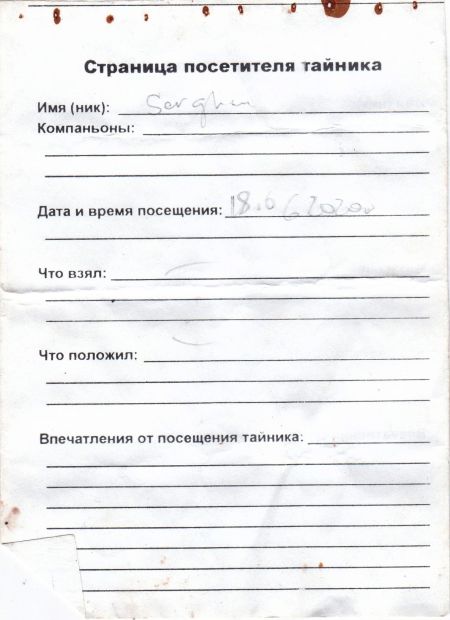 Страница посетителя тайника
Имя (ник):
Компаньоны:
Дата и время посещения: 18.06 2020г
Что взял:
Что положил:
Впечатления от посещения тайника: